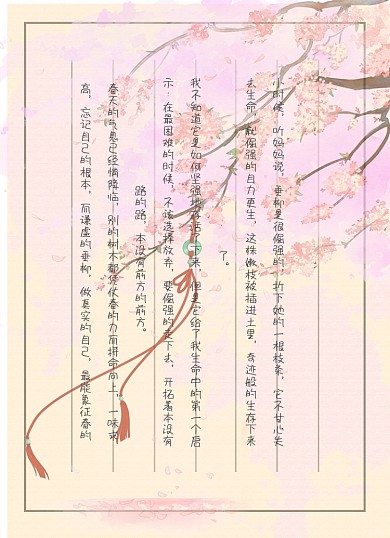 小时候，听妈妈说，垂柳是很倔强的，折下她的一根枝条，它不甘心失
去生命，就倔强的自力更生，这株嫩枝被插进土里，奇迹般的生存下来
了。
我不知道它是如何坚强地存活了下来，但是它给了我生命中的第一个启
示：在最困难的时候，不该选择放弃，要倔强的走下去，开拓着本没有
路的路，本没有前方的前方。
春天的气息已经悄悄降临，别的树木都凭仗春的力而拼命向上，一味求
高，忘记自己的根本，而谦虚的垂柳，做真实的自己，最能象征春的